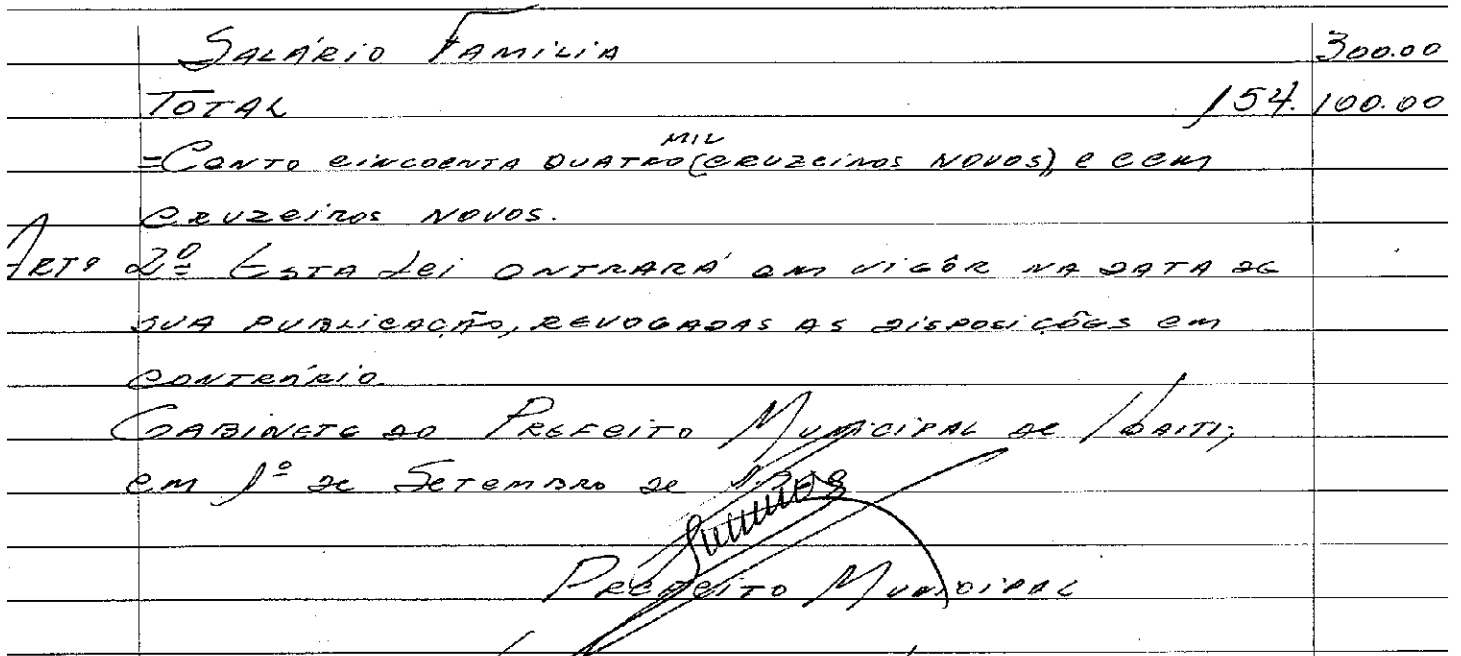 Salário Família 300.00
Total 154.100.00
MIL
=Conto cincoenta quatro (cruzeiros novos) e cem
cruzeiros novos.
Artº 2º Esta Lei ontrará em vigôr na data de
sua publicação, revogadas as disposições em
contrário.
Gabinete do Prefeito Municipal de Ibaiti,
em 1º de Setembro de
Prefeito Municipal